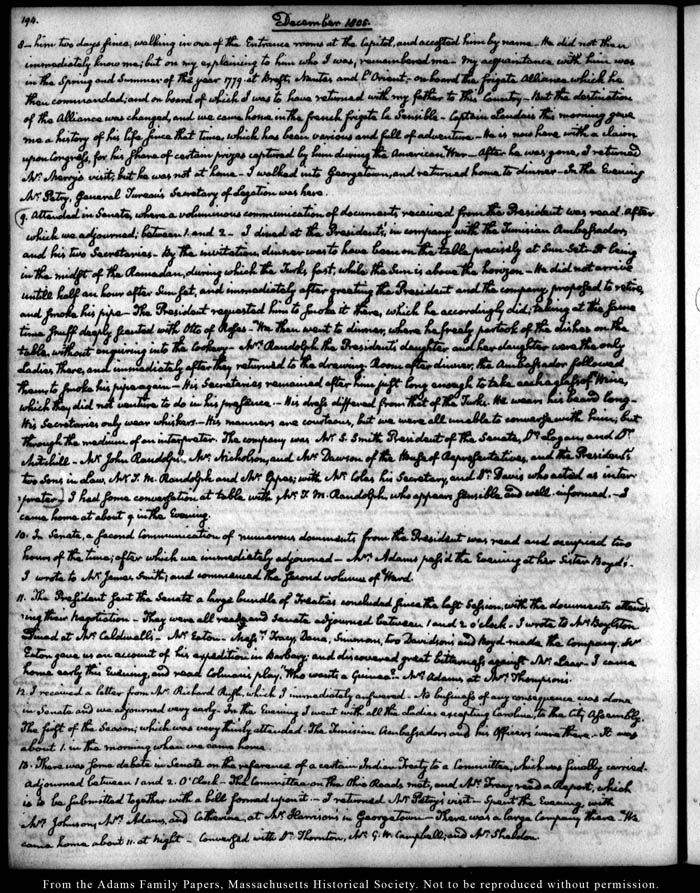 194.
December 1805.
8— him two days since, walking in one of the Entrance rooms at the Capitol, and accosted him by name— He did not then
immediately know me; but on my explaining to him who I was, remembered me— My acquaintance with him was
in the Spring and Summer of the year 1779 at Brest, Nantes and L'Orient— on board the frigate Alliance which he
then commanded, and on board of which I was to have returned with my father to this Country— But the destination
of the Alliance was changed, and we came home in the french frigate La Sensible— Captain Landais this morning gave
me a history of his life since that time, which has been various and full of adventure— He is now here with a claim
upon Congress, for his share of certain prizes captured by him during the American War— After he was gone, I returned
Mr. Merry's visit, but he was not at home— I walked into Georgetown, and returned home to dinner— In the Evening
Mr. Petry, General Tureau's Secretary of Legation was here.
9. Attended in Senate, where a voluminous communication of documents received from the President was read. After
which we adjourned; between 1. and 2— I dined at the President's, in company with the Tunisian Ambassador,
and his two Secretaries— By the invitation, dinner was to have been on the table precisely at Sun Set— It being
in the midst of the Ramadan, during which the Turks fast, while the Sun is above the horizon— He did not arrive
untill half an hour after Sun set, and immediately after greeting the President and the company, proposed to retire,
and smoke his pipe— The President requested him to smoke it there, which he accordingly did; taking at the same
time snuff deeply scented with Otto of Roses— We then went to dinner, where he freely partook of the dishes on the
table, without enquiring into the Cookery— Mrs. Randolph the President's daughter and her daughter were the only
Ladies there, and immediately after they returned to the drawing Room after dinner, the Ambassador followed
them to smoke his pipe again— His Secretaries remained after him just long enough to take each a glass of Wine,
which they did not venture to do in his presence— His dress differed from that of the Turks. He wears his beard long—
His Secretaries only wear whiskers— His manners are courteous, but we were all unable to converse with him, but
through the medium of an interpreter. The company was Mr. S. Smith President of the Senate, Dr. Logan, and Dr.
Mitchill— Mr. John Randolph, Mr. Nicholson, and Mr. Dawson of the House of Representatives, and the President's
two Sons in Law, Mr. T. M. Randolph and Mr. Eppes; with Mr. Coles his Secretary, and Mr. Davis who acted as inter
preter— I had some conversation at table with Mr. T. M. Randolph, who appears sensible and well-informed.— I
came home at about 9 in the Evening.
10. In Senate, a second Communication of numerous documents from the President was read and occupied two
hours of the time; after which we immediately adjourned— Mrs. Adams pass'd the Evening at her Sister Boyd's—
I wrote to Mr. James Smith; and commenced the second volume of Ward.
11. The President sent the Senate a large bundle of Treaties concluded since the last Session, with the documents attend-
ing their Negotiation— They were all read, and Senate adjourned between 1 and 2 o'clock— I wrote to Mr. Boylston
Dined at Mr. Caldwell's— Mr. Eaton— Messrs. Tracy, Dana, Simmons, two Davidsons and Boyd made the Company. Mr.
Eaton gave us an account of his expedition in Barbary; and discovered great bitterness against Mr. Lear— I came
home early this Evening, and read Colman's play, "Who wants a Guinea"— Mrs. Adams at Mrs. Thompson's.
12. I received a letter from Mr. Richard Rush, which I immediately answered— No business of any consequence was done
in Senate and we adjourned very early. In the Evening I went with all the Ladies excepting Caroline, to the City Assembly.
The first of the Season; which was very thinly attended— The Tunisian Ambassador and his Officers were there— It was
about 1. in the morning when we came home
13. There was some debate in Senate on the reference of a certain Indian Treaty to a Committee, which was finally carried.
Adjourned between 1 and 2. O'Clock— The Committee on the Ohio Roads met, and Mr. Tracy read a Report, which
is to be submitted together with a bill formed upon it— I returned Mr. Petry's visit— Spent the Evening, with
Mrs. Johnson, Mrs. Adams, and Catherine, at Mr. Harrison's in Georgetown— There was a large Company there— We
came home about 11. at Night— Conversed with Dr. Thornton, Mr. G. W. Campbell, and Mr. Sheldon.
From the Adams Family Papers, Massachusetts Historical Society. Not to be reproduced without permission.